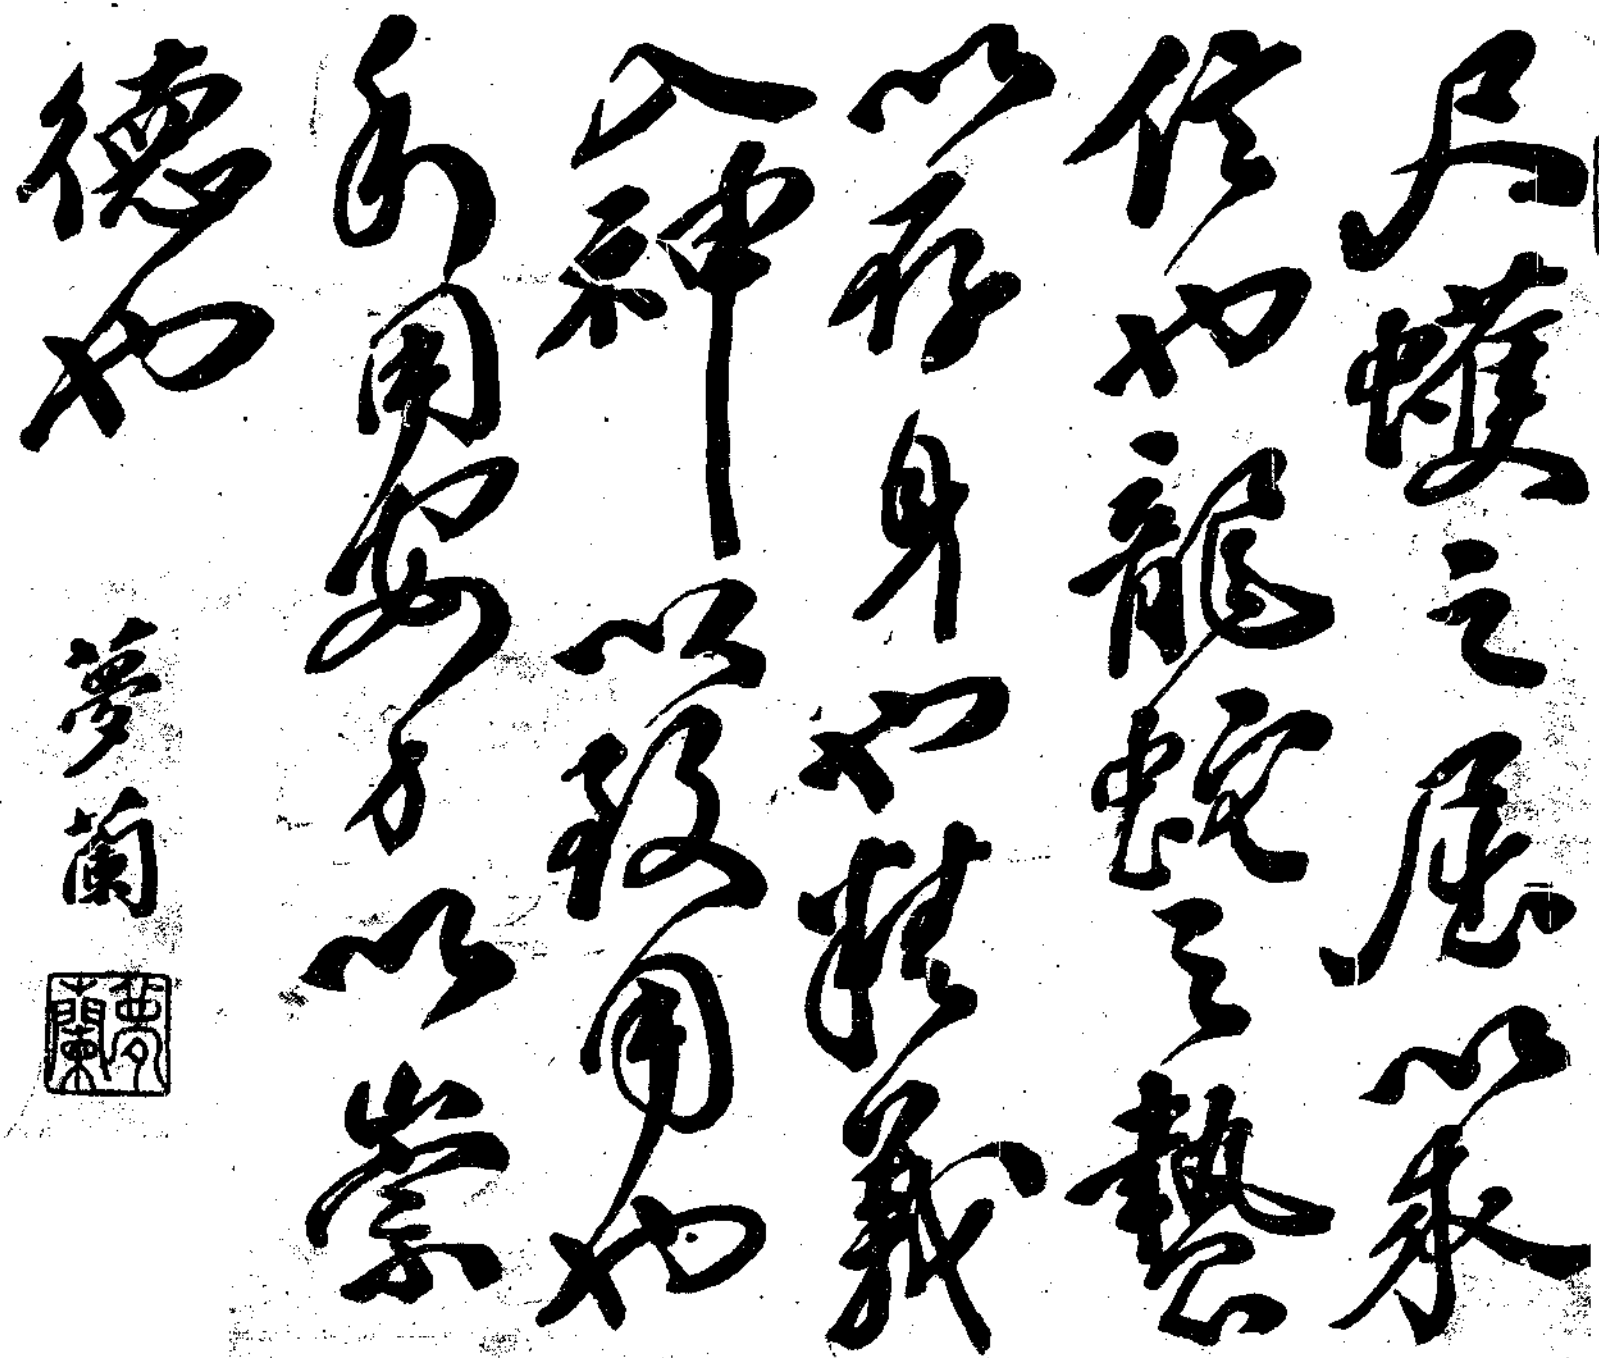 尺蠖之屈以求
信也龍蛇之蟄
以存身也精義
入神以致用也
利用安身以崇
德也
夢蘭
夢蘭